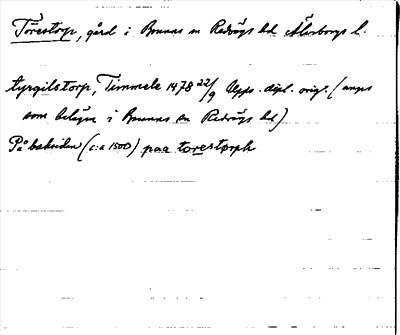 Torestorp, gård i Brunns sn Redvägs hd Älvsborgs l.
tyrgilstorp, Timmele 1478 22/9 Upps. dipl. orig. (anges
som belägen i Brunns sn Redvägs hd)
På baksidan (c:a 1500) paa torestorph